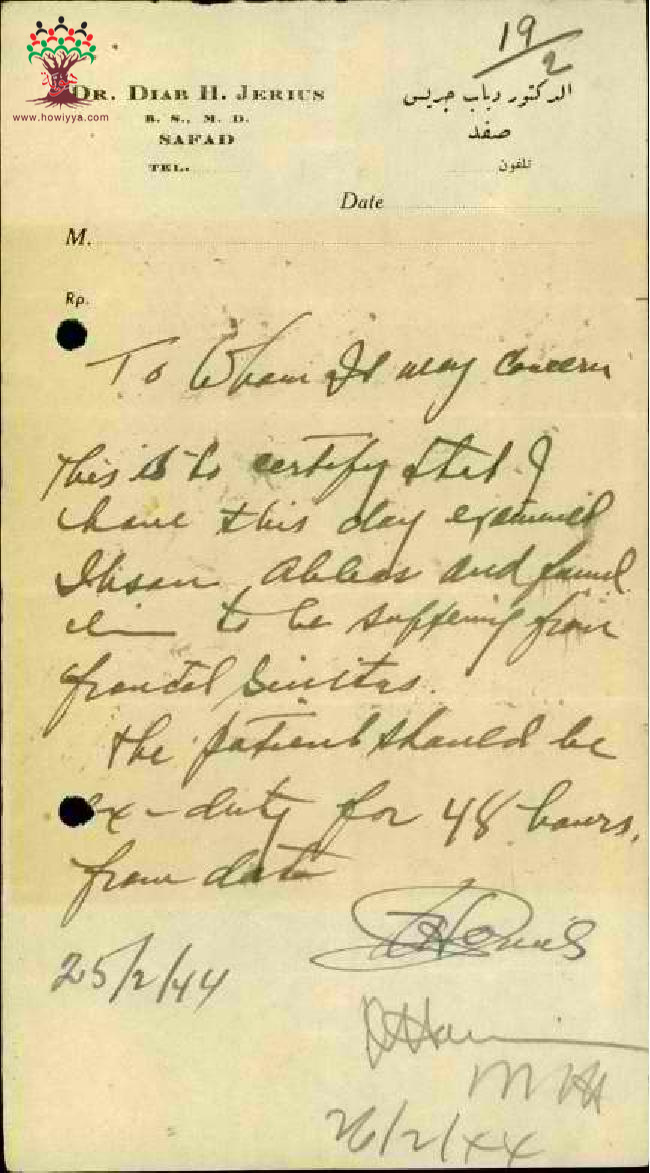 19/2
www.howiyya.com
DR. DIAB H. JERIUS
B. S., M. D.
SAFAD
TEL.
الدكتور دياب جريس
صفد
تلفون
Date
M.
Rp.
To Whom It may Concern
This is to certify that I
have this day examined
Ihsan Abbas and found
him to be suffering from
frontal Sinusitis.
The patient should be
ex-duty for 48 hours,
from date
25/2/44
26/2/44